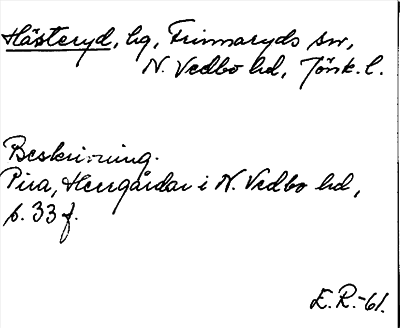 Hästeryd, hg, Frinnaryds sn,
N. Vedbo hd, Jönk. l.
Beskrivning.
Pira, Herrgårdar i N. Vedbo hd,
s. 33 f.
E. R. -61.